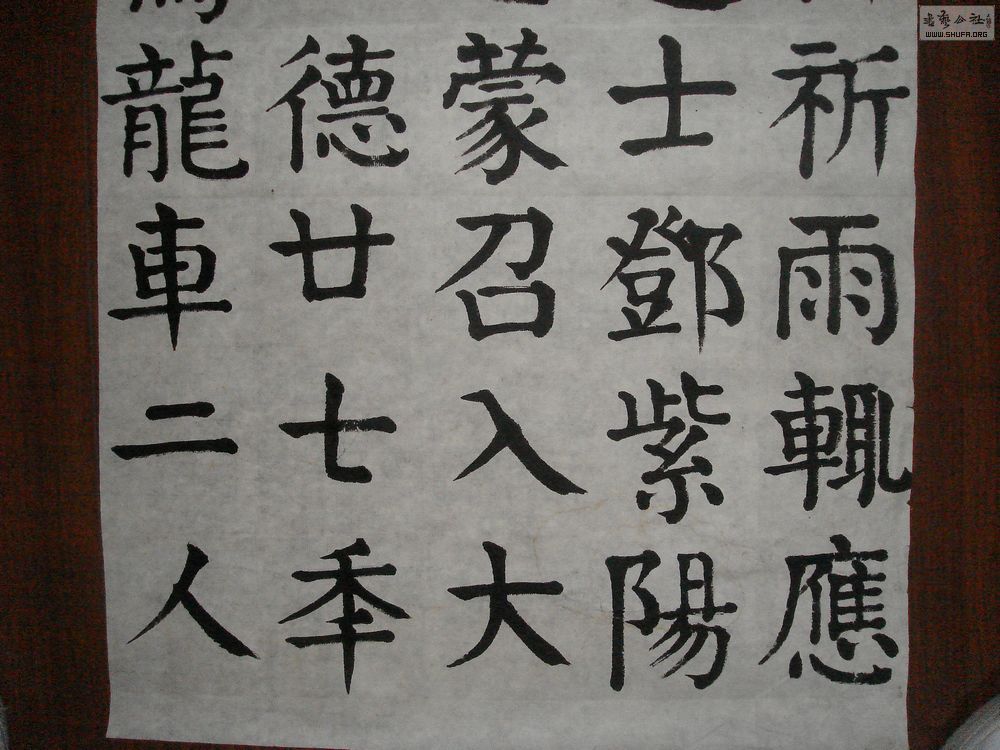 祈雨輒應
士鄧紫陽
蒙召入大
德廿七秊
龍車二人
WWW.SHUFA.ORG